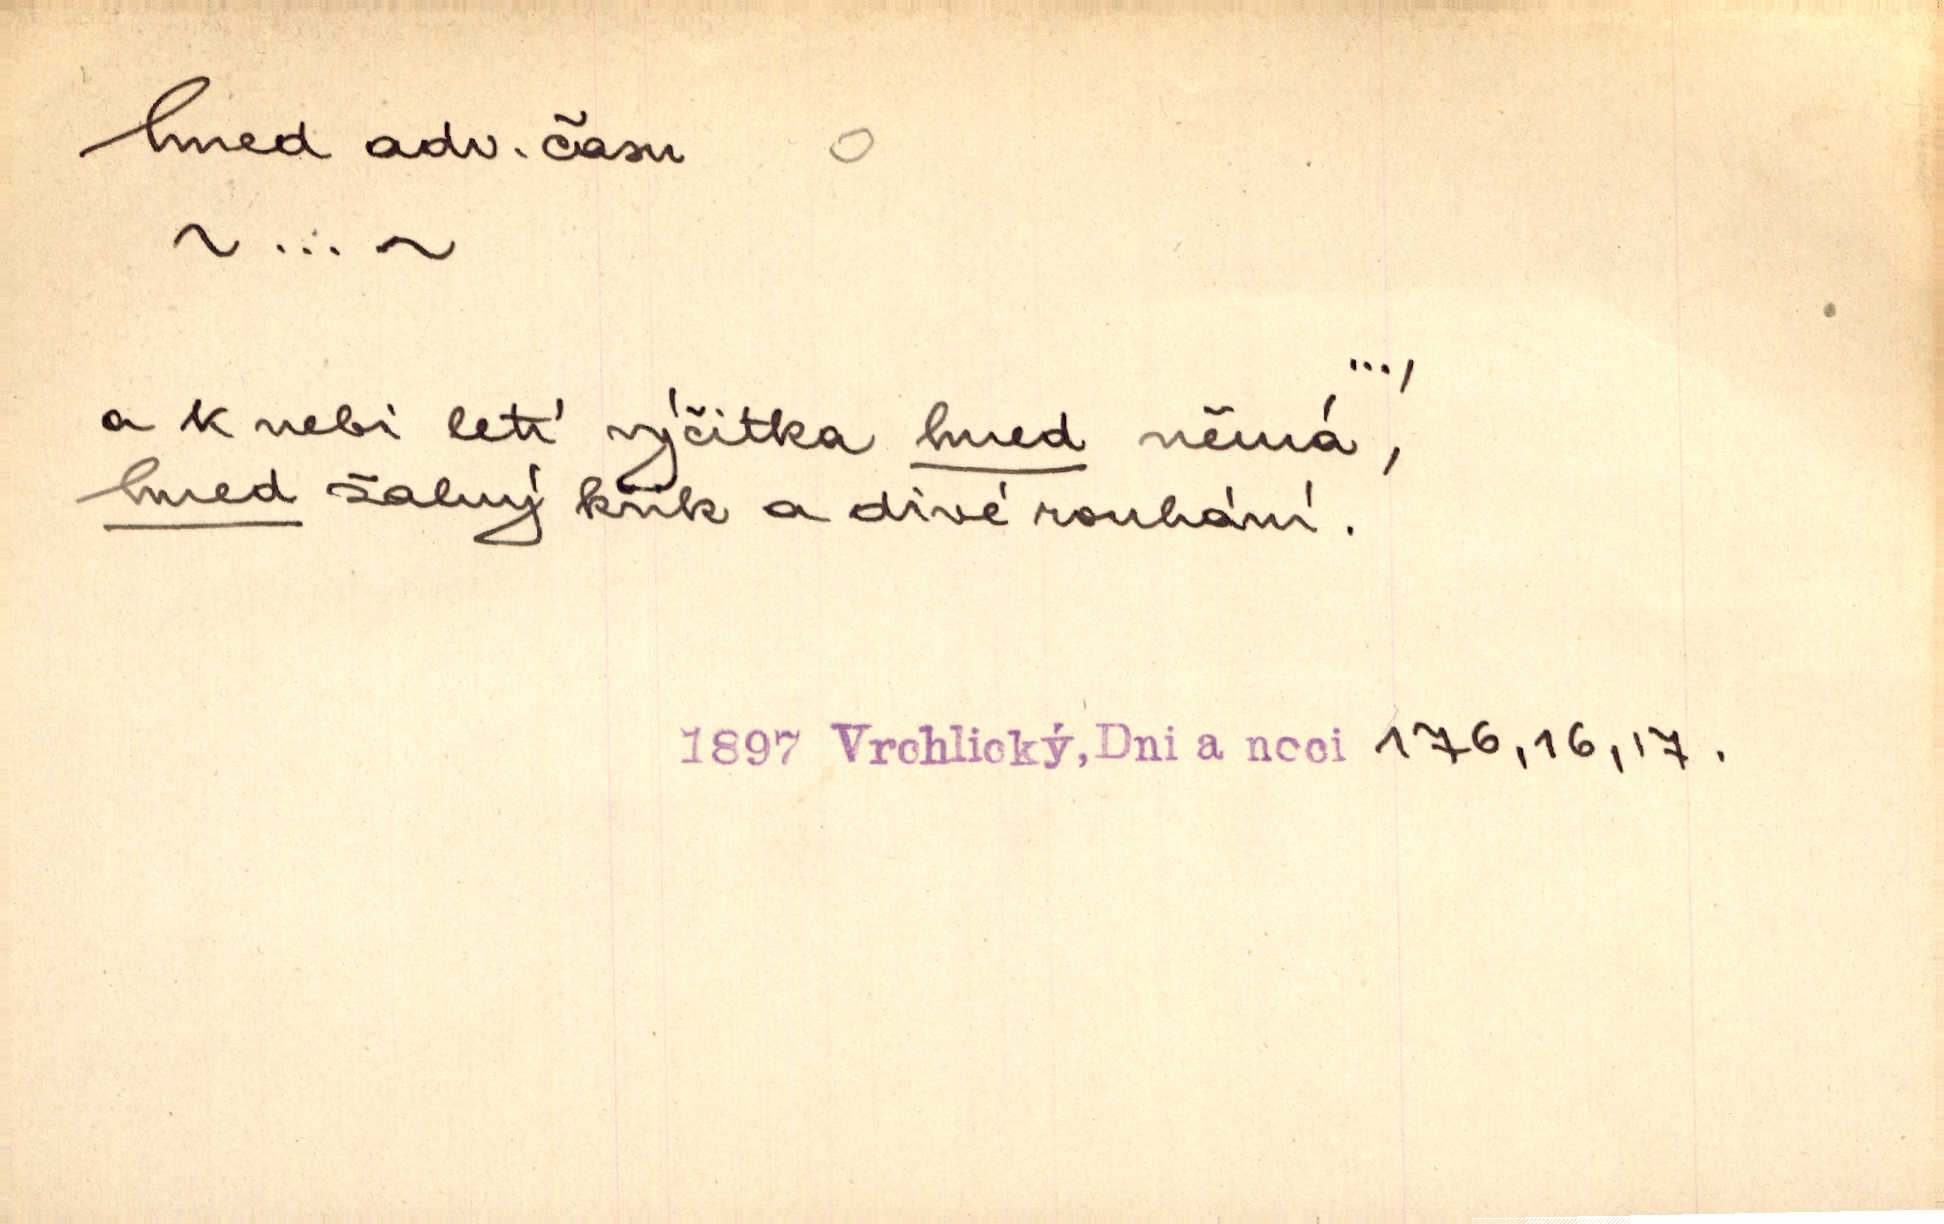 hned adv. času
~ ... ~
... /
a k nebi letí výčitka hned němá,
hned šalný křik a divé rouhání.
1897 Vrchlický, Dni a noci 176,16,17.